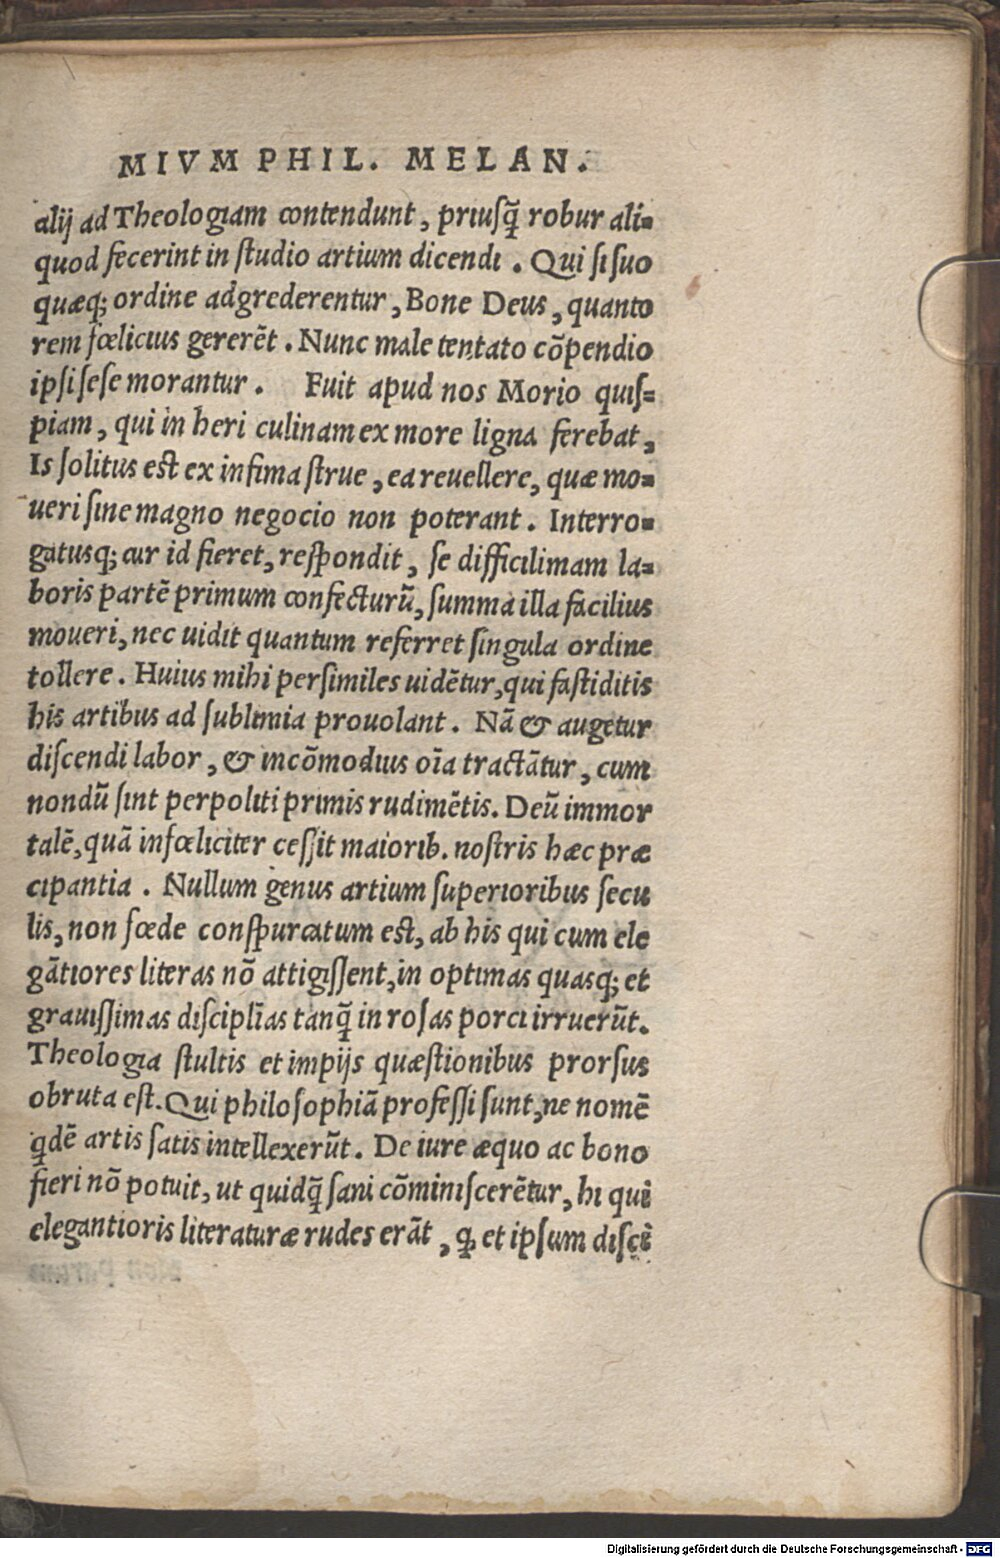 MIVM PHIL. MELAN.
alij ad Theologiam contendunt, priusq̃ robur ali-
quod fecerint in studio artium dicendi. Qui si suo
quæq; ordine adgrederentur, Bone Deus, quanto
rem fœlicius gererẽt. Nunc male tentato cõpendio
ipsi sese morantur. Fuit apud nos Morio quis-
piam, qui in heri culinam ex more ligna ferebat,
Is solitus est ex infima strue, ea reuellere, quæ mo-
ueri sine magno negocio non poterant. Interro-
gatusq; cur id fieret, respondit, se difficilimam la-
boris partẽ primum confecturũ, summa illa facilius
moueri, nec uidit quantum referret singula ordine
tollere. Huius mihi persimiles uidẽtur, qui fastiditis
his artibus ad sublimia prouolant. Nã & augetur
discendi labor, & incõmodius oĩa tractãtur, cum
nondũ sint perpoliti primis rudimẽtis. Deũ immor
talẽ, quã infœliciter cessit maiorib. nostris hæc præ
cipantia. Nullum genus artium superioribus secu
lis, non fœde conspurcatum est, ab his qui cum ele
gãtiores literas nõ attigissent, in optimas quasq; et
grauissimas disciplĩas tanq̃ in rosas porci irruerũt.
Theologia stultis et impijs quæstionibus prorsus
obruta est. Qui philosophiã professi sunt, ne nomẽ
q̃dẽ artis satis intellexerũt. De iure æquo ac bono
fieri nõ potuit, ut quidq̃ sani cõminiscerẽtur, hi qui
elegantioris literaturæ rudes erãt, ꝙ et ipsum disci
Digitalisierung gefördert durch die Deutsche Forschungsgemeinschaft - DFG